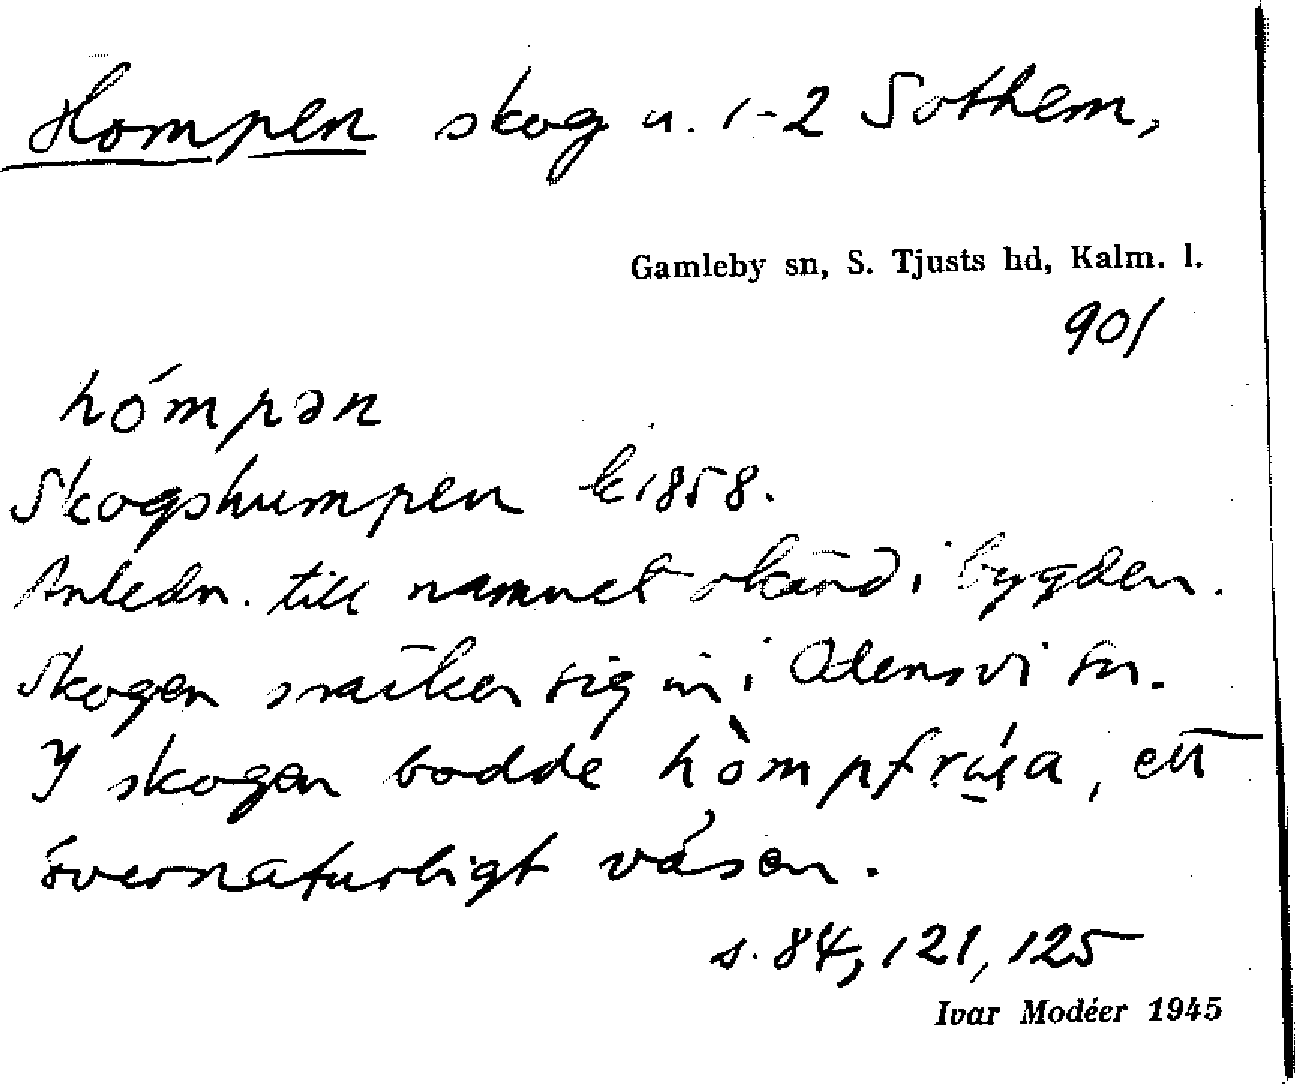 Hompen skog u. 1-2 Sothem,
Gamleby sn, S. Tjusts hd, Kalm. l.
901
hómpən
Skogshumpen k 1858.
Anledn. till namnet okänd i bygden.
Skogen sträcker sig in i Odensvi sn.
I skogen bodde
, ett
övernaturligt väsen.
s. 84, 121, 125
Ivar Modéer 1945